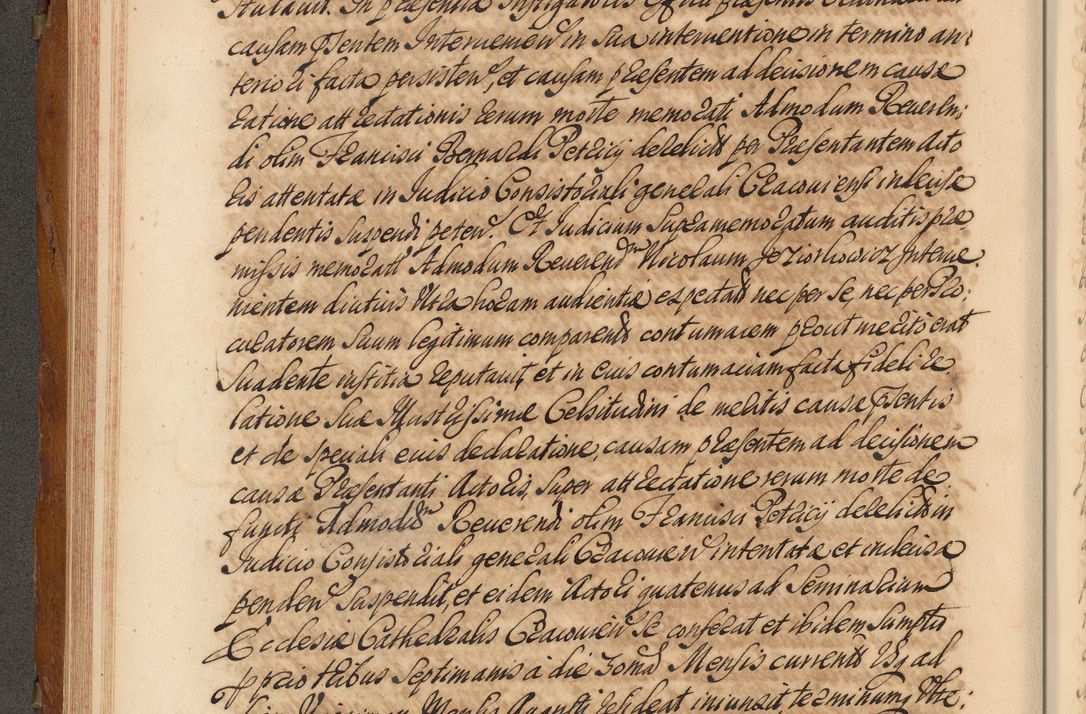 causam p̄sentem Interuenien̄ in sua interuentione in termino an
teriori facta persisten̄, et causam præsentem ad decisionem causæ
ratione attrectationis rerum morte memorati Admodum Reueren:
di olim Francisci Bernardi Petricij derelict̄ per Præsentantem Acto
ris attentatæ in Judicio Consistoriali generali Cracouiensi indecisæ
pendentis suspendi peten̄. Et Judicium supramemoratum auditis præ
missis memorat̄ Admodum Reuerend̄m Nicolaum Jeziorkowicz Interue
nientem diutius Vltra horam audientiæ expectat̄ nec per se, nec per Pro:
curatorem suum legitimum comparent̄ contumacem prout merito erat
Suadente iustitia reputauit, et in eius contumaciam facta fideli re
latione suæ Illustrissimæ Celsitudini de meritis causæ p̄sentis
et de speciali eius declaratione, causam præsentem ad decisionem
causæ Præsentanti Actoris, super attrectatione rerum morte de
functi Admod̄m Reuerendi olim Francisci Petricij derelict̄ in
Judicio Consistoriali generali Cracouien̄ intentatæ et indecisæ
penden̄ suspendit, et eidem Actori quatenus ad Seminarium
Ecclesiæ Cathedralis Cracouien̄ se conferat et ibidem sumptu
pprio tribus septimanis à die 30ma Mensis currentis Usq ad